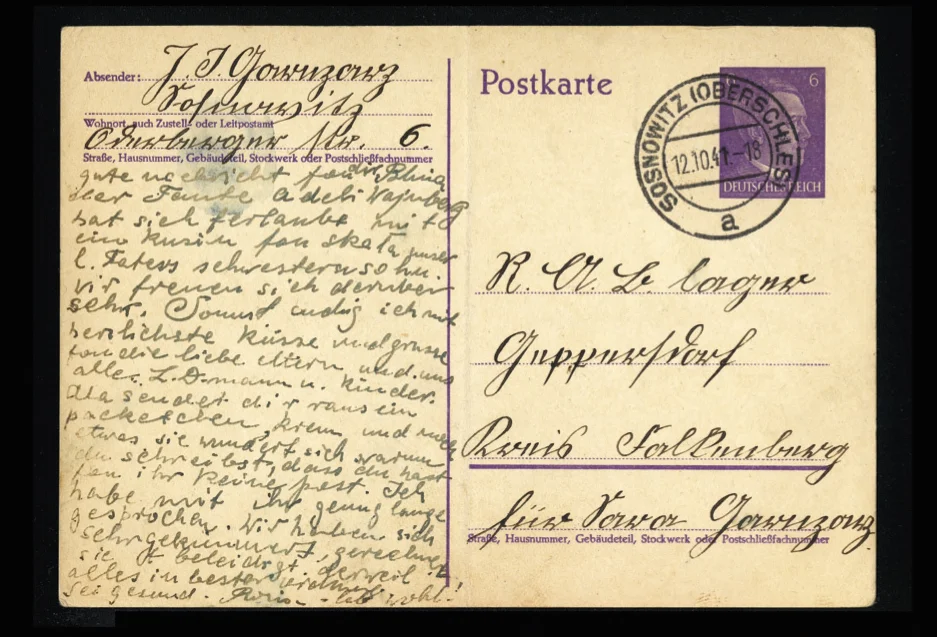 Absender: J. J. Garnzarz
Sosnowitz
Wohnort, auch Zustell- oder Leitpostamt
Oderberger Str. 6.
Straße, Hausnummer, Gebäudeteil, Stockwerk oder Postschließfachnummer
gute nachricht fon dir, Blima
der Tante adeli Wajnberg
hat sich ferlaubt mit
ein kusin fon skala unser
l. Faters schwesternsohn.
Wir freuen sich derüber
sehr. Sonnst endig ich mit
herzlichste küsse und grüsse
fon die liebe eltern und uns
alle. L. D. mann u. Kinder.
sendet dir raus ein
päcketchen, krem und noch
etwas, sie wundert sich warum
du schreibst, dass du hast
fon ihr keine post. Ich
habe mit ihr genug lange
gesprochen. Wir haben sich
sehr gekümmert,
sie beleidigt derweil
alles in bester ordnung
sei gesund. - leb wohl!
Postkarte
6
DEUTSCHES REICH
SOSNOWITZ (OBERSCHLES)
12.10.41.-18
a
R. A. B. lager
Geppersdorf
Kreis Falkenberg
für Sara Garnzarz
Straße, Hausnummer, Gebäudeteil, Stockwerk oder Postschließfachnummer